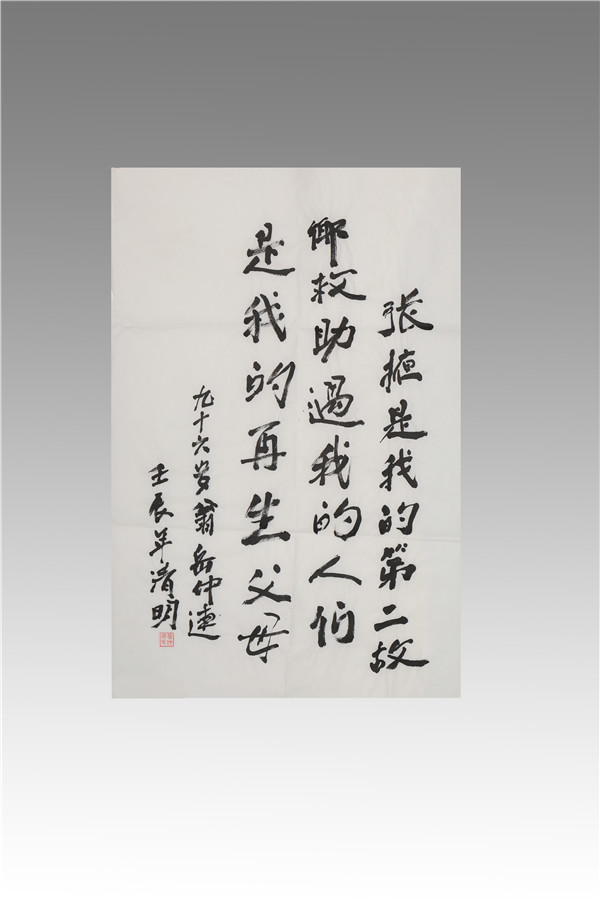 张掖是我的第二故
乡救助过我的人们
是我的再生父母
九十六岁翁岳仲连
壬辰年清明